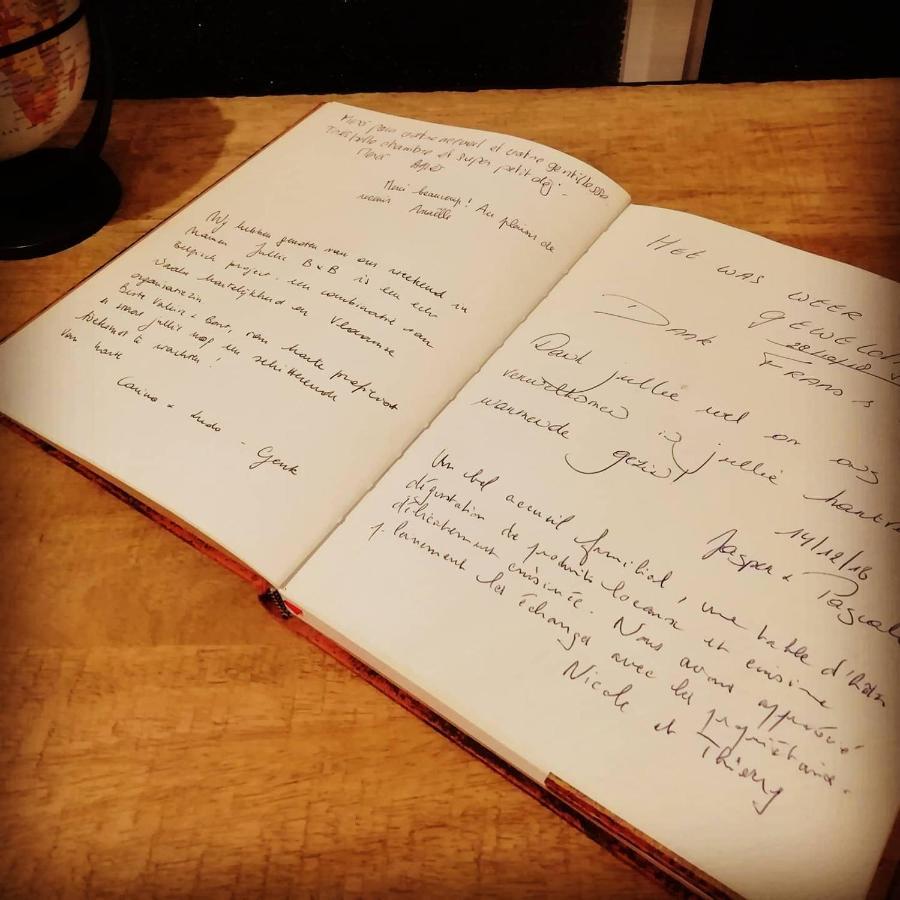 Merci pour votre accueil et votre gentillesse
Très belle chambre et super petit dej.
Merci
Merci beaucoup! Au plaisir de
revenir Anaëlle
Wij hebben genoten van ons weekend in
Namen. Jullie B&B is een echt
Belgisch project. een combinatie van
Waalse hartelijkheid en Vlaamse
organisatiezin
Beste Valérie & Bart, van harte proficiat
& moge jullie nog een schitterende
toekomst te wachten!
Van harte
Carina & Ludo - Genk
HET WAS WEER
GEWELDIG
DANK 28/10/18
FRANS &
Dank jullie wel om ons
verwelkomen in jullie
warmende gezin!
14/12/18
Jasper & Pascale
Un bel accueil familial, une table d'hôtes
dégustation de produits locaux et cuisine
délicatement cuisinée. Nous avons apprécié
pleinement les échanges avec les propriétaires.
Nicole et Thierry